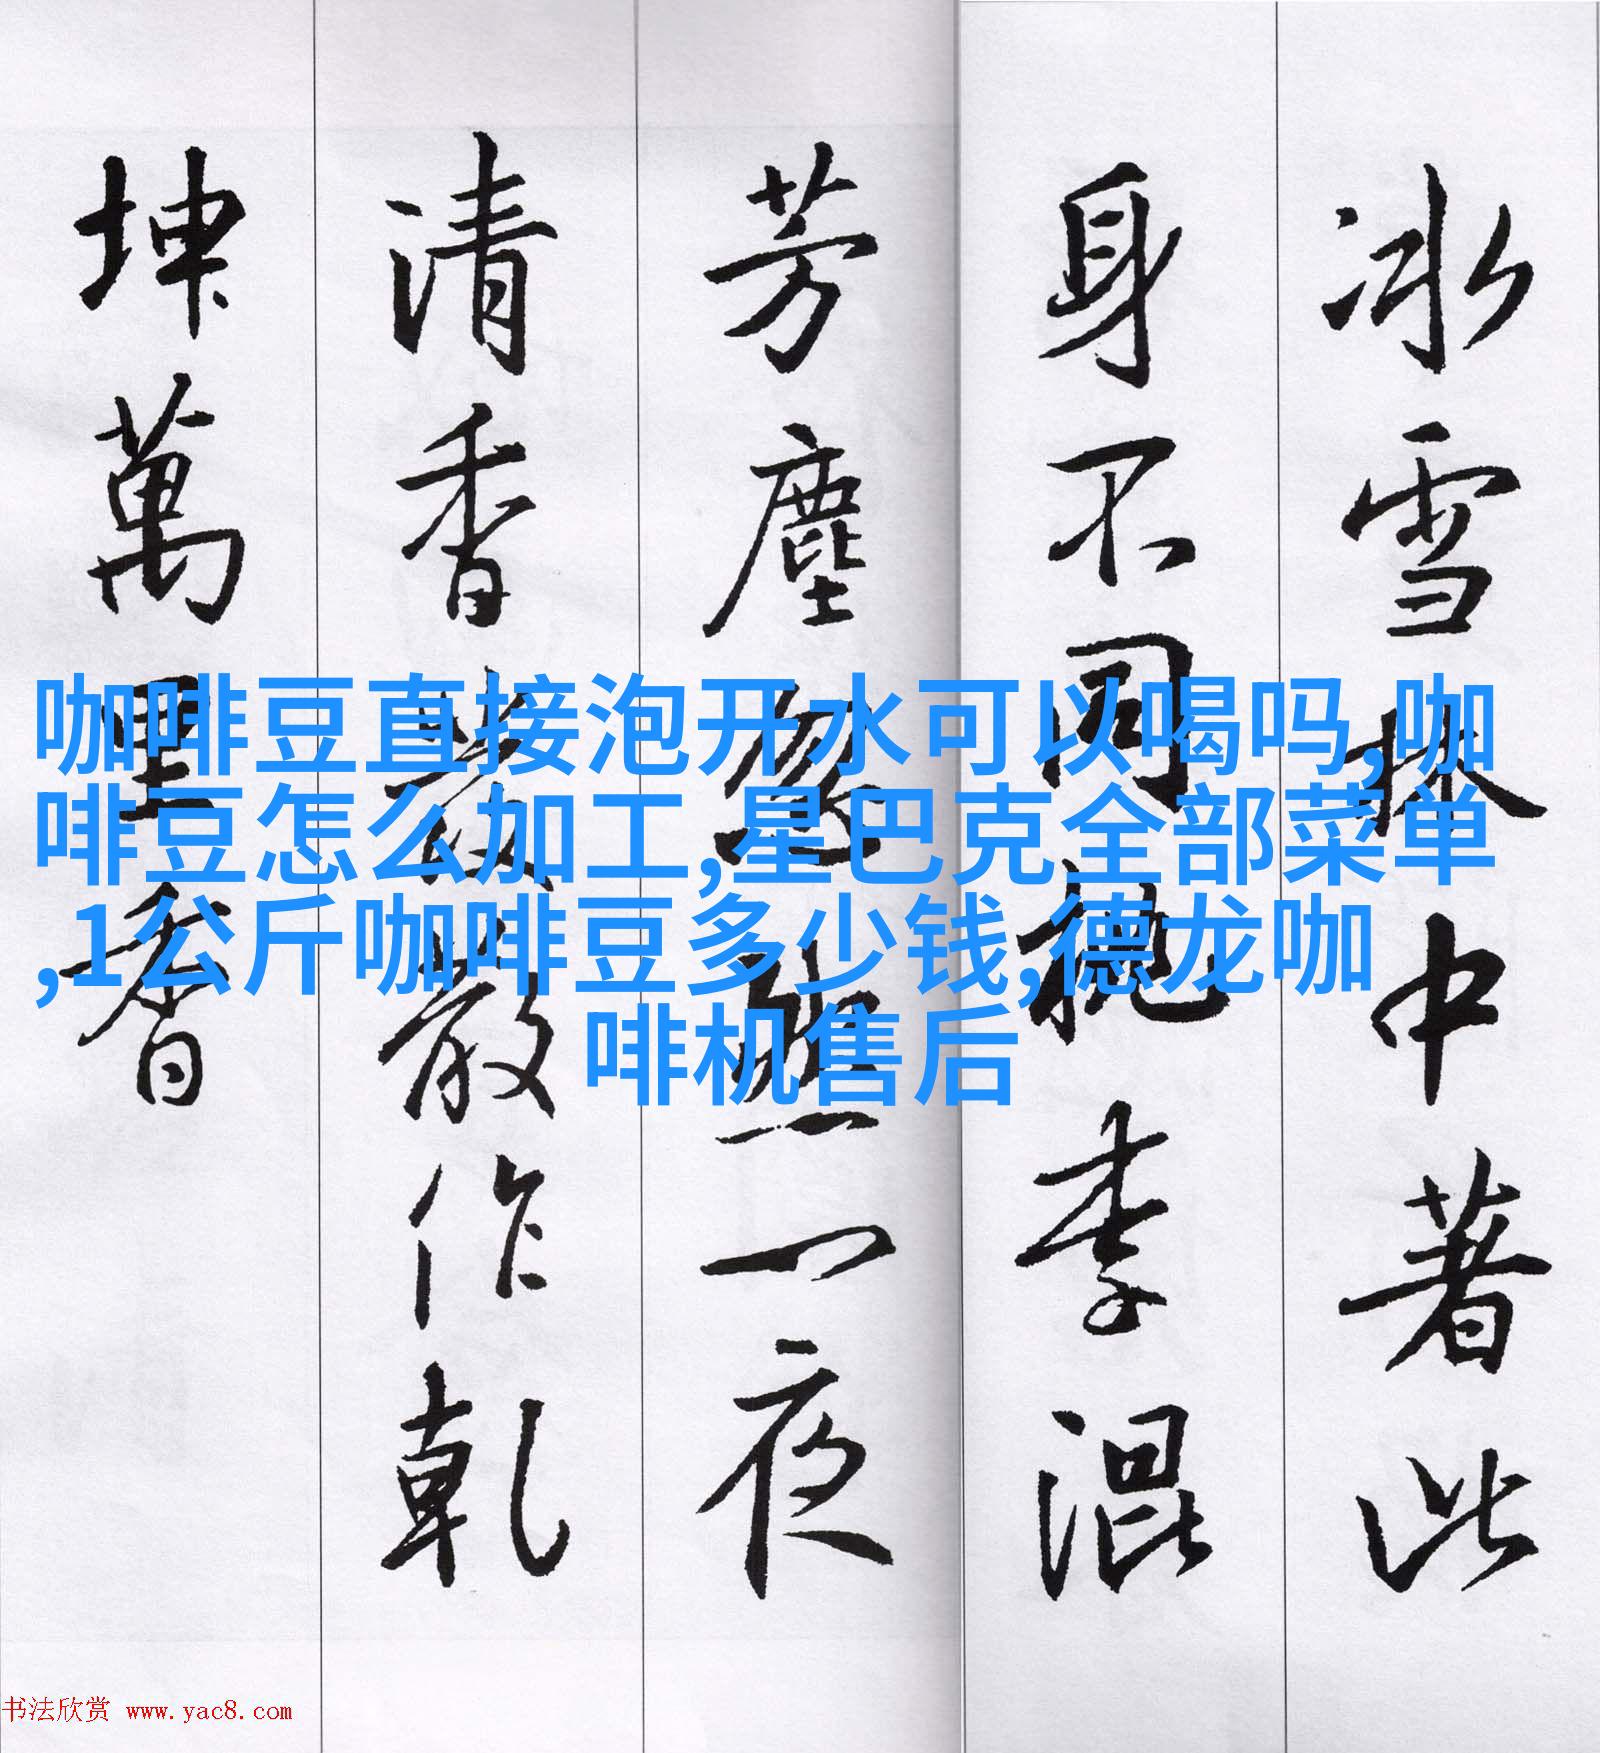 冰雪林中著此
身不同桃李混
芳塵忽然一夜
清香發散作乾
坤萬里春
咖啡豆直接泡开水可以喝吗,咖
啡豆怎么加工,星巴克全部菜单
,1公斤咖啡豆多少钱,德龙咖
啡机售后
书法欣赏 www.yac8.com